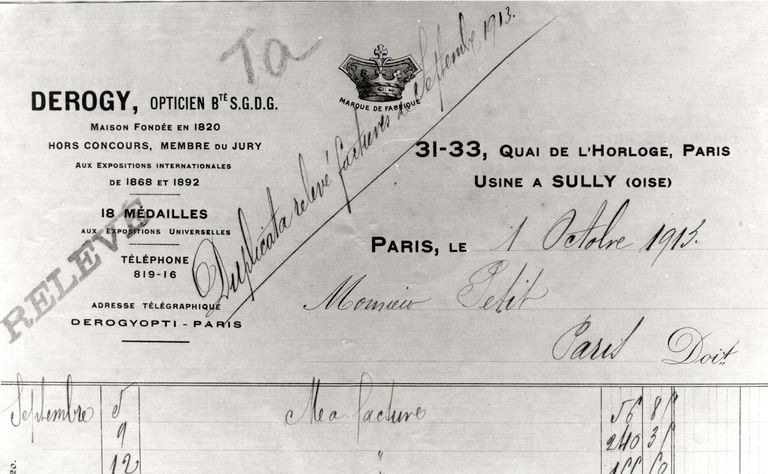 Ta
DEROGY, OPTICIEN BTÉ S.G.D.G.
MAISON FONDÉE EN 1820
HORS CONCOURS, MEMBRE DU JURY
AUX EXPOSITIONS INTERNATIONALES
DE 1868 ET 1892
18 MÉDAILLES
AUX EXPOSITIONS UNIVERSELLES
TÉLÉPHONE
819-16
ADRESSE TÉLÉGRAPHIQUE
DEROGYOPTI - PARIS
RELEVÉ
MARQUE DE FABRIQUE
Duplicata relevé factures de Septembre 1913.
31-33, QUAI DE L'HORLOGE, PARIS
USINE A SULLY (OISE)
PARIS, LE 1 Octobre 1913.
Monsieur Petit
Paris Doit
Septembre 5 Ma facture 56 85
9 240 35
12 "